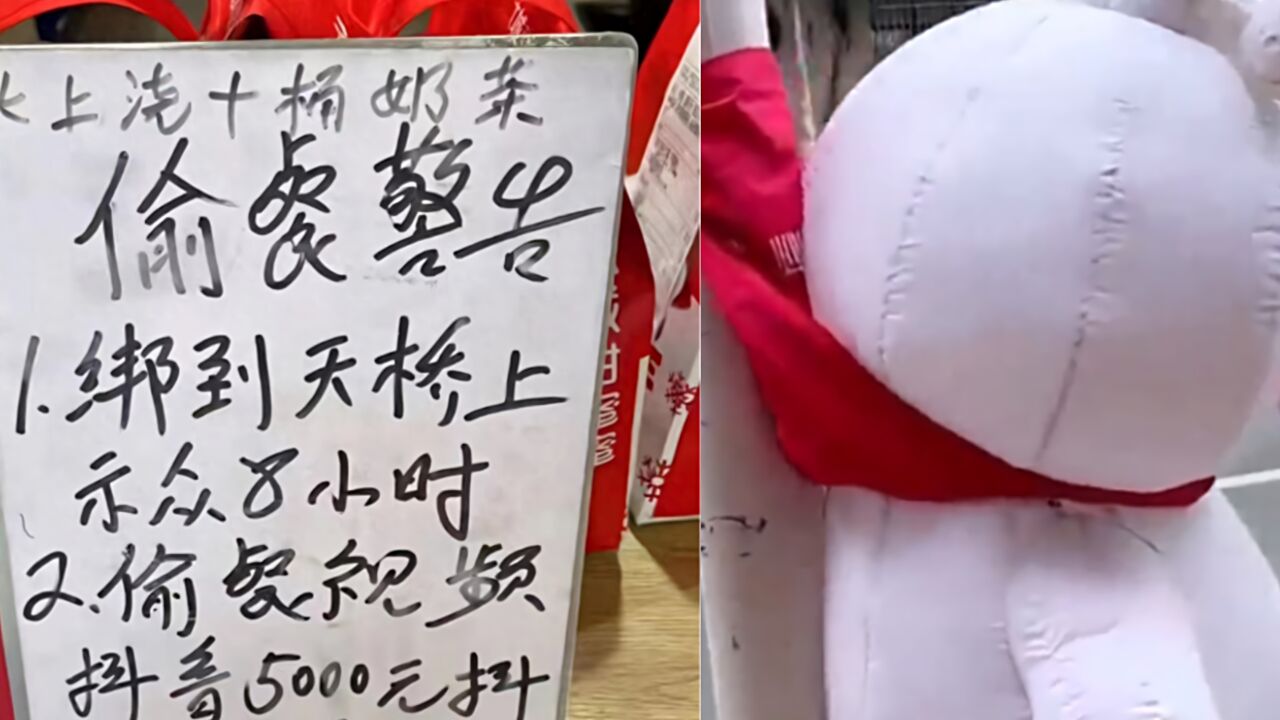 上浇十桶奶茶
偷餐警告
1.绑到天桥上
示众8小时
2.偷餐视频
抖音5000元抖
蜜